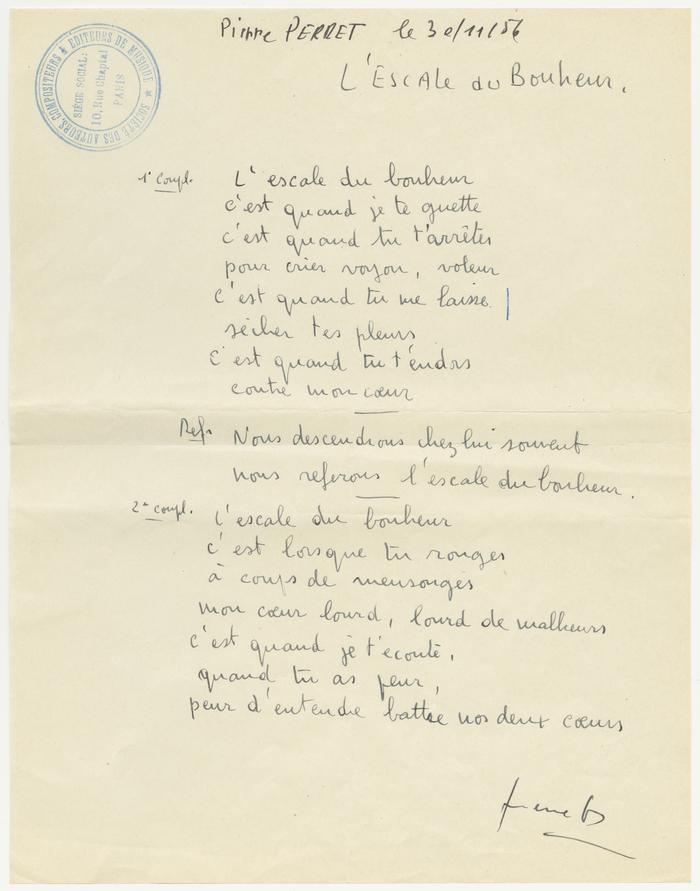 Pierre PERRET le 30/11/56
L'ESCALE du Bonheur.
SOCIÉTÉ DES AUTEURS, COMPOSITEURS & EDITEURS DE MUSIQUE
SIÈGE SOCIAL:
10, Rue Chaptal
PARIS
1er Coupl. L'escale du bonheur
c'est quand je te guette
c'est quand tu t'arrêtes
pour crier voyou, voleur
c'est quand tu me laisse
sécher tes pleurs
c'est quand tu t'endors
contre mon cœur
Refr Nous descendrons chez lui souvent
nous referons l'escale du bonheur.
2e coupl. L'escale du bonheur
c'est lorsque tu ronges
à coups de mensonges
mon cœur lourd, lourd de malheurs
c'est quand je t'écoute,
quand tu as peur,
peur d'entendre battre nos deux cœurs